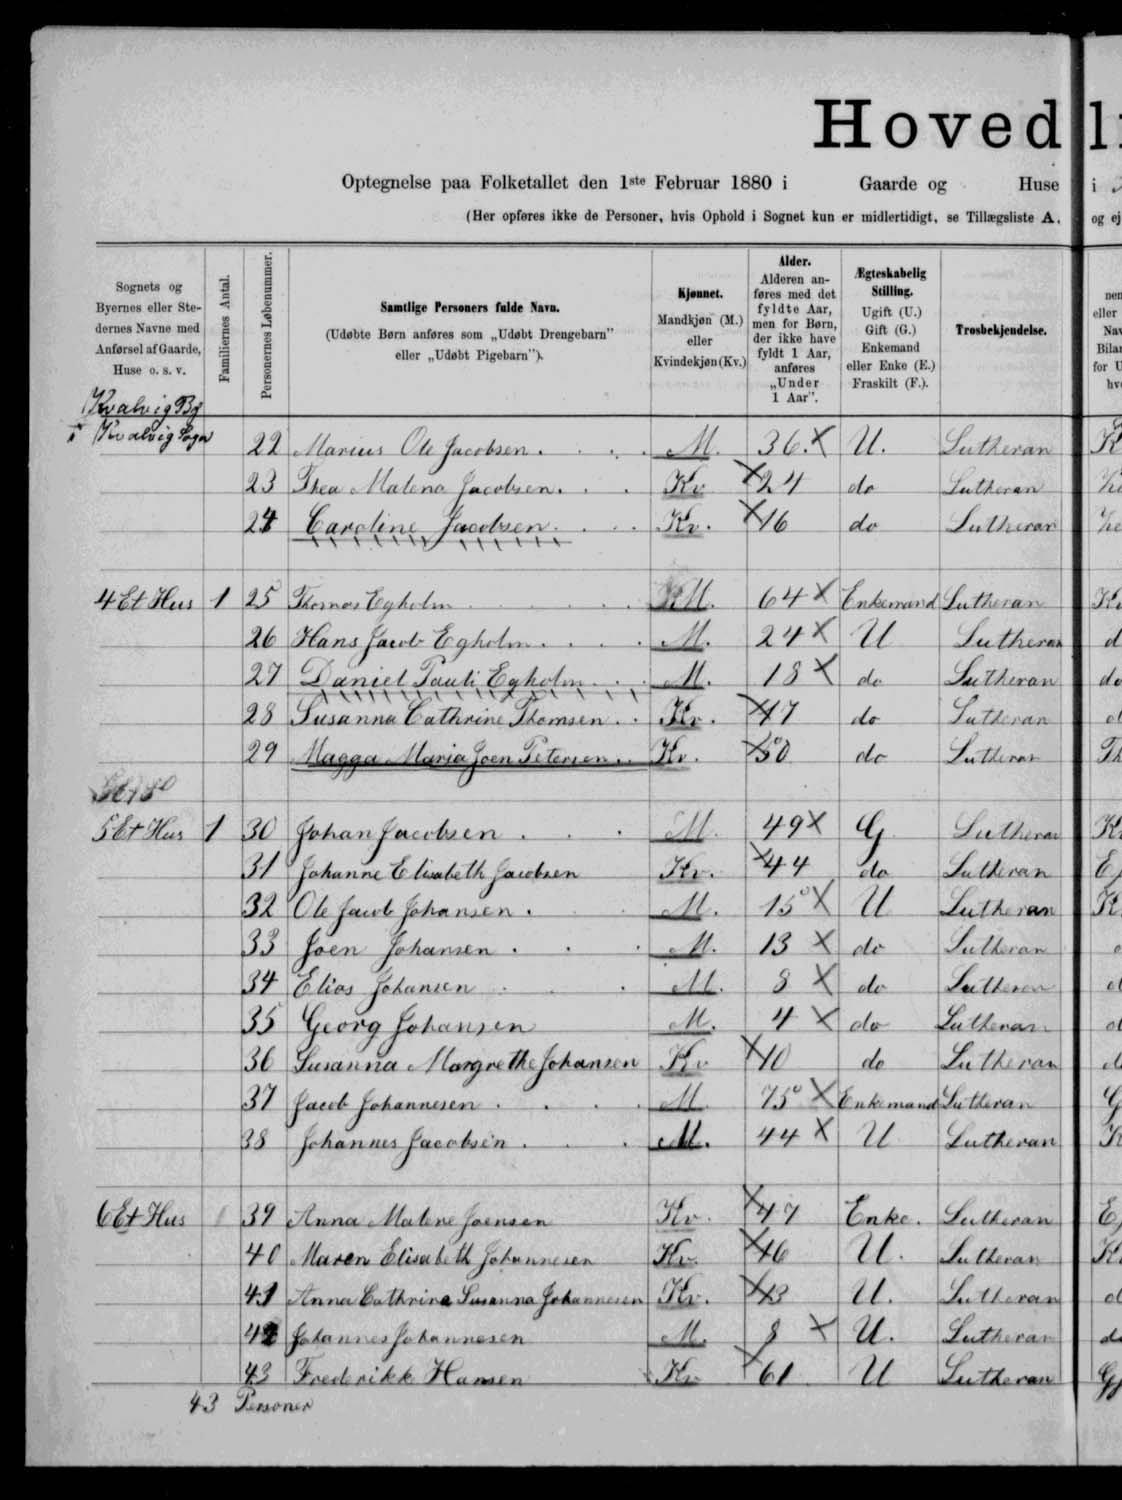 Hovedli
Optegnelse paa Folketallet den 1ste Februar 1880 i Gaarde og Huse i
(Her opføres ikke de Personer, hvis Ophold i Sognet kun er midlertidigt, se Tillægsliste A. og ej
Sognets og Byernes eller Stedernes Navne med Anførsel af Gaarde, Huse o. s. v.
Familiernes Antal.
Personernes Løbenummer.
Samtlige Personers fulde Navn.
(Udøbte Børn anføres som „Udøbt Drengebarn" eller „Udøbt Pigebarn").
Kjønnet.
Mandkjøn (M.) eller Kvindekjøn (Kv.)
Alder.
Alderen anføres med det fyldte Aar, men for Børn, der ikke have fyldt 1 Aar, anføres „Under 1 Aar".
Ægteskabelig Stilling.
Ugift (U.) Gift (G.) Enkemand eller Enke (E.) Fraskilt (F.).
Trosbekjendelse.
Kvalvig By
i Kvalvig Sogn
22 Marius Ole Jacobsen. M. 36. X U. Lutheran
23 Thea Malena Jacobsen. Kv X 24 do Lutheran
24 Caroline Jacobsen. Kv. X 16 do Lutheran
4 Et Hus 1 25 Thomas Egholm M. 64 X Enkemand Lutheran
26 Hans Jacob Egholm. M. 24 X U Lutheran
27 Daniel Pauli Egholm M. 18 X do Lutheran
28 Susanna Cathrine Thomsen. Kv. X 47 do Lutheran
29 Magga Maria Joen Petersen. Kv. X 50 do Lutheran
5 Et Hus 1 30 Johan Jacobsen. M. 49 X G Lutheran
31 Johanne Elisabeth Jacobsen Kv. X 44 do Lutheran
32 Ole Jacob Johansen. M. 15 X U Lutheran
33 Joen Johansen. M. 13 X do Lutheran
34 Elias Johansen M. 8 X do Lutheran
35 Georg Johansen M. 4 X do Lutheran
36 Susanna Margrethe Johansen Kv X 10 do Lutheran
37 Jacob Johannesen. M. 75 X Enkemand Lutheran
38 Johannes Jacobsen. M. 44 X U Lutheran
6 Et Hus 39 Anna Malene Joensen Kv. X 47 Enke. Lutheran
40 Maren Elisabeth Johannesen Kv. X 16 U. Lutheran
41 Anna Cathrina Susanna Johannesen Kv. X 13 U. Lutheran
42 Johannes Johannesen M. 8 X U. Lutheran
43 Frederikk Hansen Kv X 61 U Lutheran
43 Personer